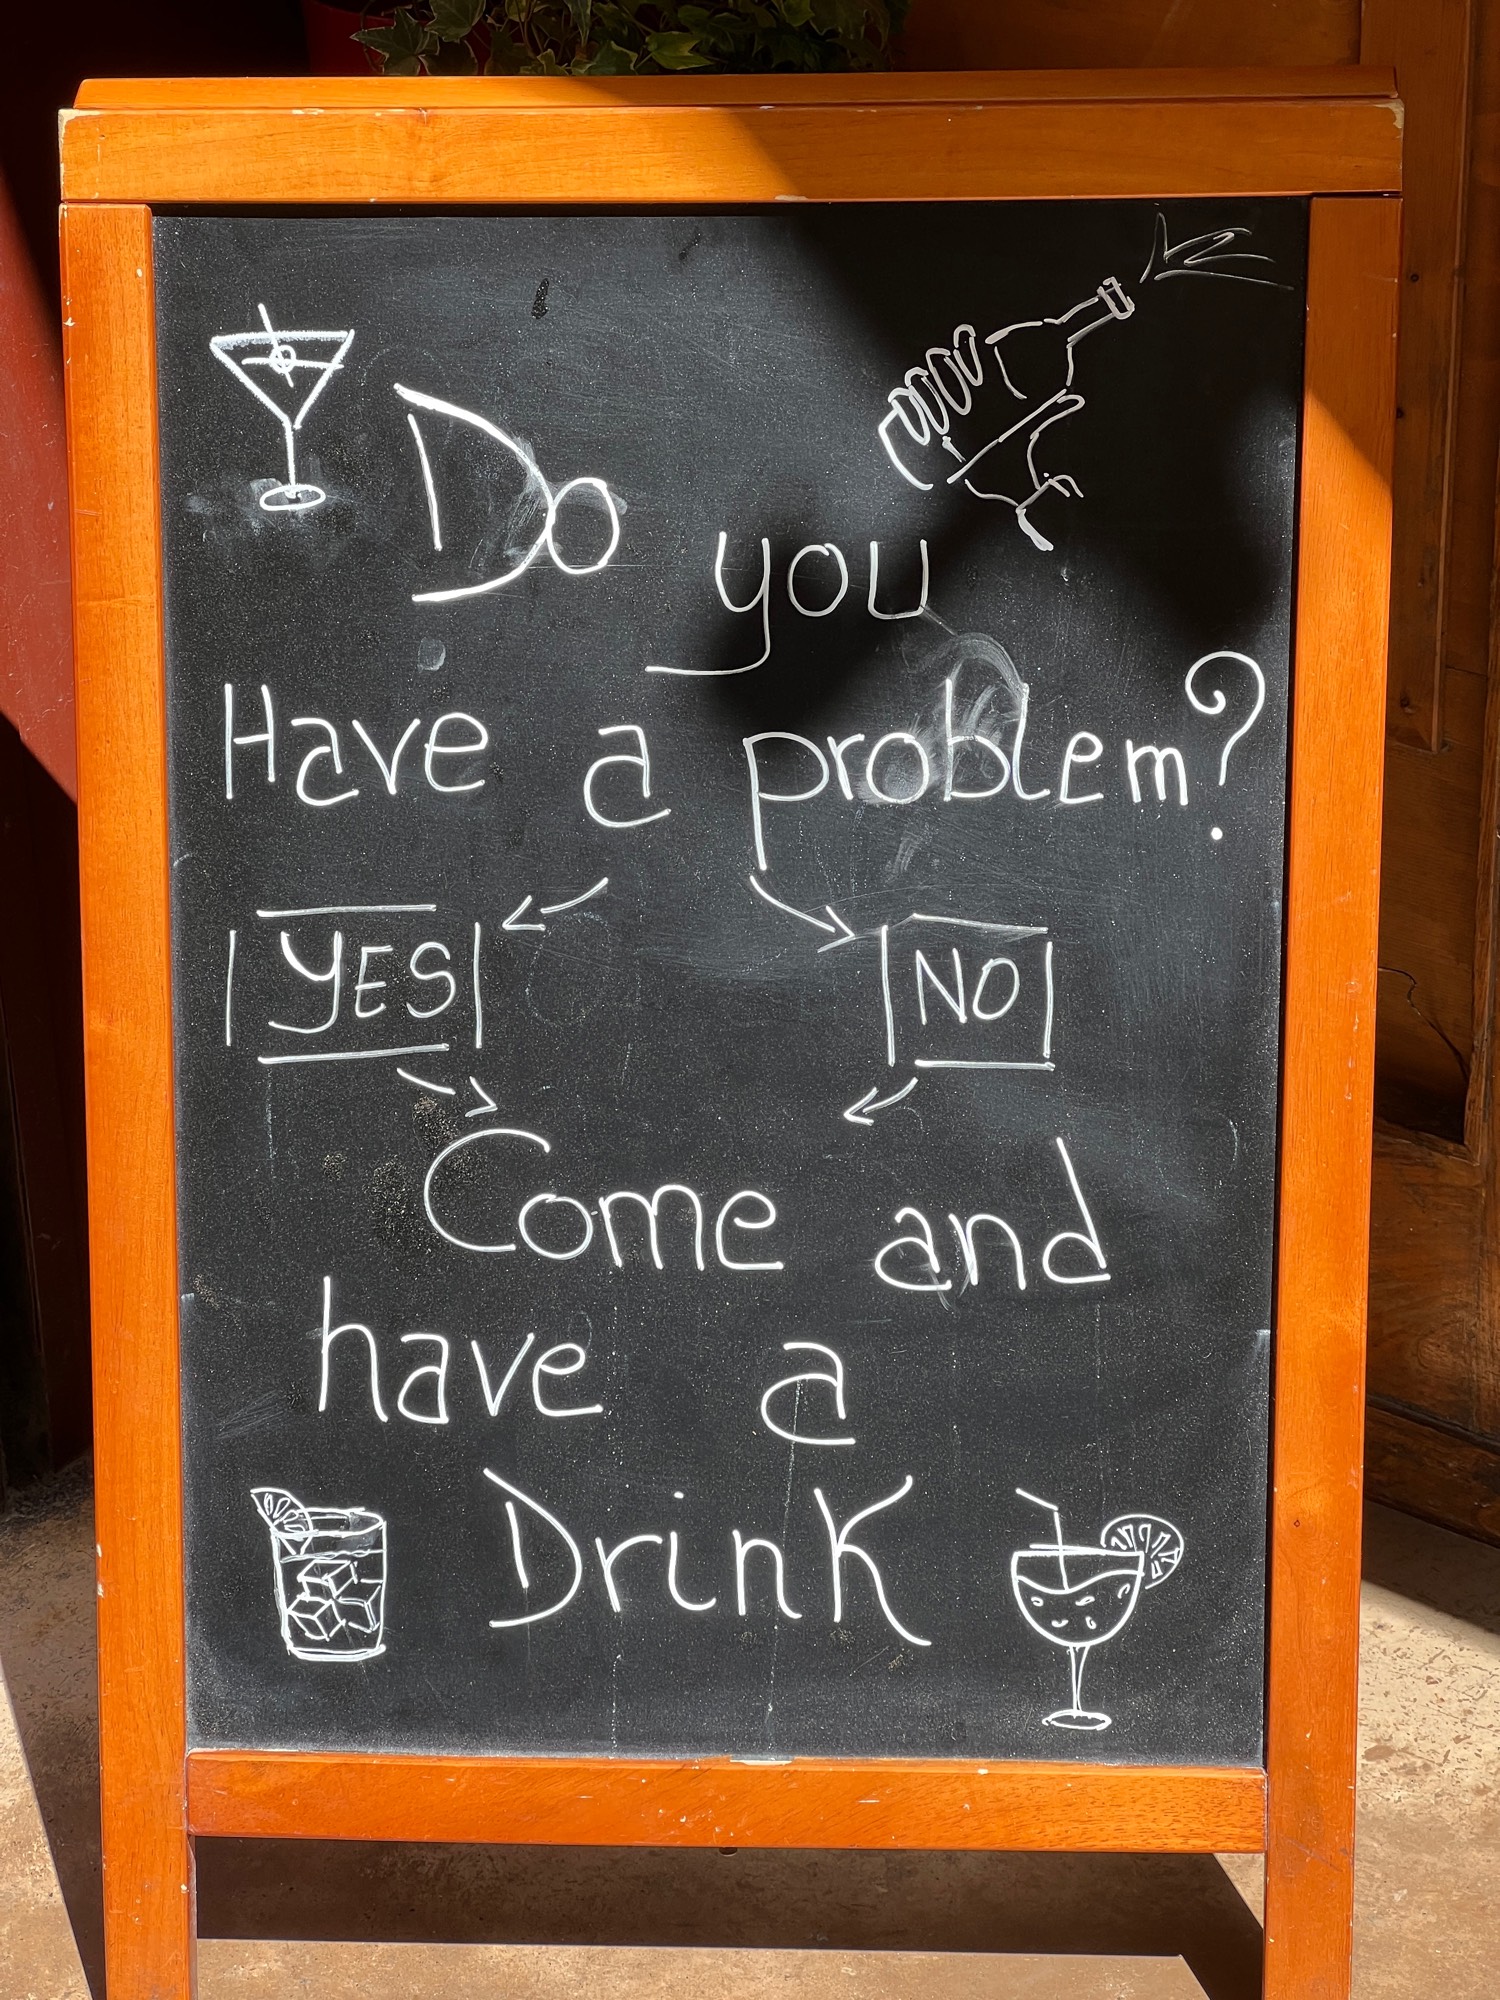 Do you
Have a problem?
YES NO
Come and
have a
Drink